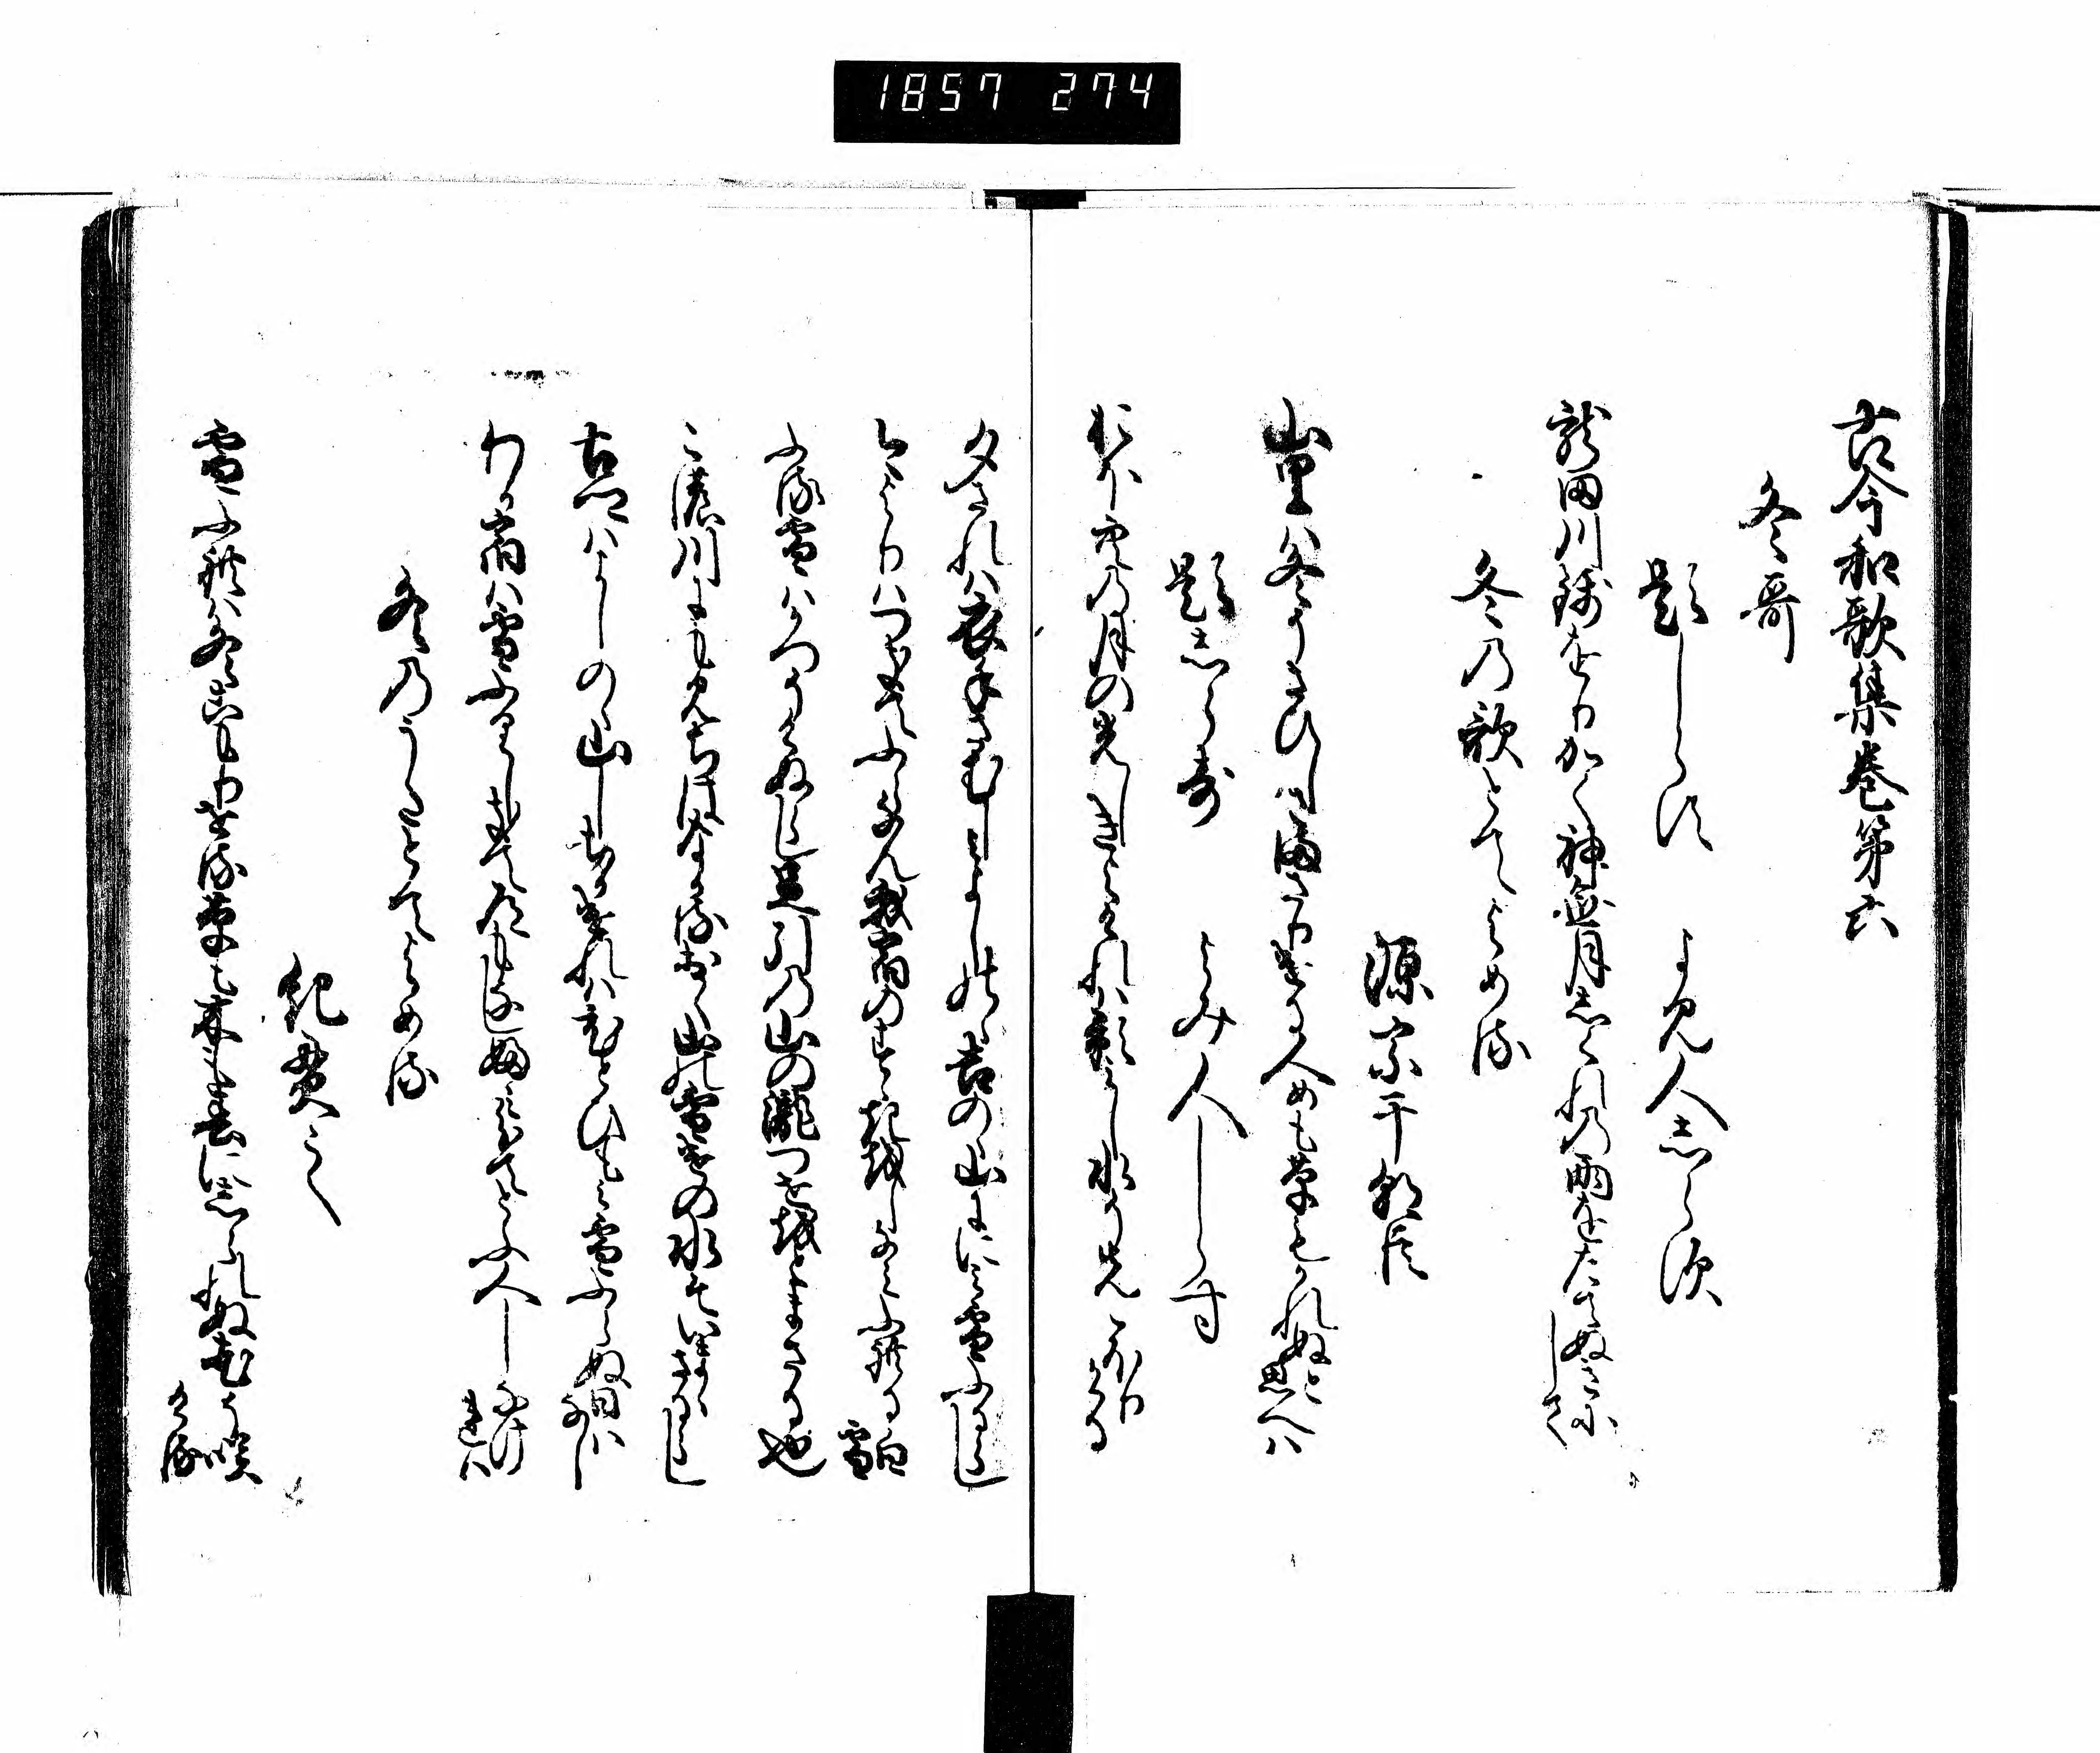 1857 274
古今和歌集巻第六
冬哥
題しらす
よみ人しらす
龍田川錦をりかく神無月しくれの雨をたてぬきにして
冬の歌とてよめる
源宗于朝臣
山里は冬そさひしさまさりける人めも草もかれぬと思へは
題しらす
よみ人しらす
おほ空の月の光しきよけれは影みし水そ先こほりける
夕されは衣手さむしみよしのゝ吉の山にみ雪ふるらし
今よりはつきてふらなん我宿のすゝきをしなみふれる白雪
ふる雪はかつそけぬらし足引の山の瀧つせ音まさる也
この川にもみちはなかるおく山の雪けの水そいまゝさるらし
古郷はよしのゝ山しちかけれはひとひもみ雪ふらぬ日はなし
わか宿は雪ふりしきて道もなしふみわけてとふ人しなけれは
冬のうたとてよめる
紀貫之
雪ふれは冬こもりせる草も木も春にしられぬ花そ咲ける